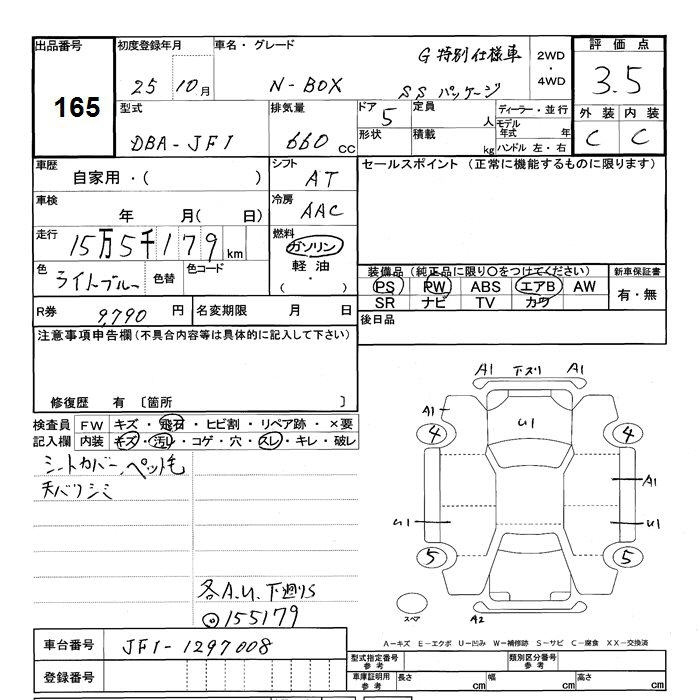 出品番号 初度登録年月 車名・グレード 評価点
165
25 10月 N-BOX G 特別仕様車 SS パッケージ 2WD・4WD 3.5
型式 排気量 ドア 定員 ディーラー・並行 外装 内装
DBA-JF1 660 CC 5 人 モデル年式 年 C C
形状 積載 kg ハンドル 左・右
車歴 シフト セールスポイント (正常に機能するものに限ります)
自家用・( ) AT
車検 冷房
年 月( 日) AAC
走行 燃料
15万5千179 km ガソリン
軽油
・( )
色 色替 色コード
ライトブルー
装備品 (純正品に限り○をつけてください) 新車保証書
PS PW ABS エアB AW 有・無
SR ナビ TV カワ
R券 9,790 円 名変期限 月 日 後日品
注意事項申告欄(不具合内容等は具体的に記入して下さい)
修復歴 有 〔箇所 〕
検査員 FW キズ・飛石・ヒビ割・リペア跡・×要
記入欄 内装 キズ・汚レ・コゲ・穴・スレ・キレ・破レ
シートカバー、ペット毛
天バリシミ
各A.U.下廻りS
◎155179
A1 下ズリ A1
A1 U1
4 4
A1
U1 U1
5 5
スペア A2
A-キズ E-エクボ U-凹み W-補修跡 S-サビ C-腐食 XX-交換済
車台番号 JF1-1297008
型式指定番号 参考 類別区分番号 参考
登録番号 車庫証明用 参考 長さ cm 幅 cm 高さ cm